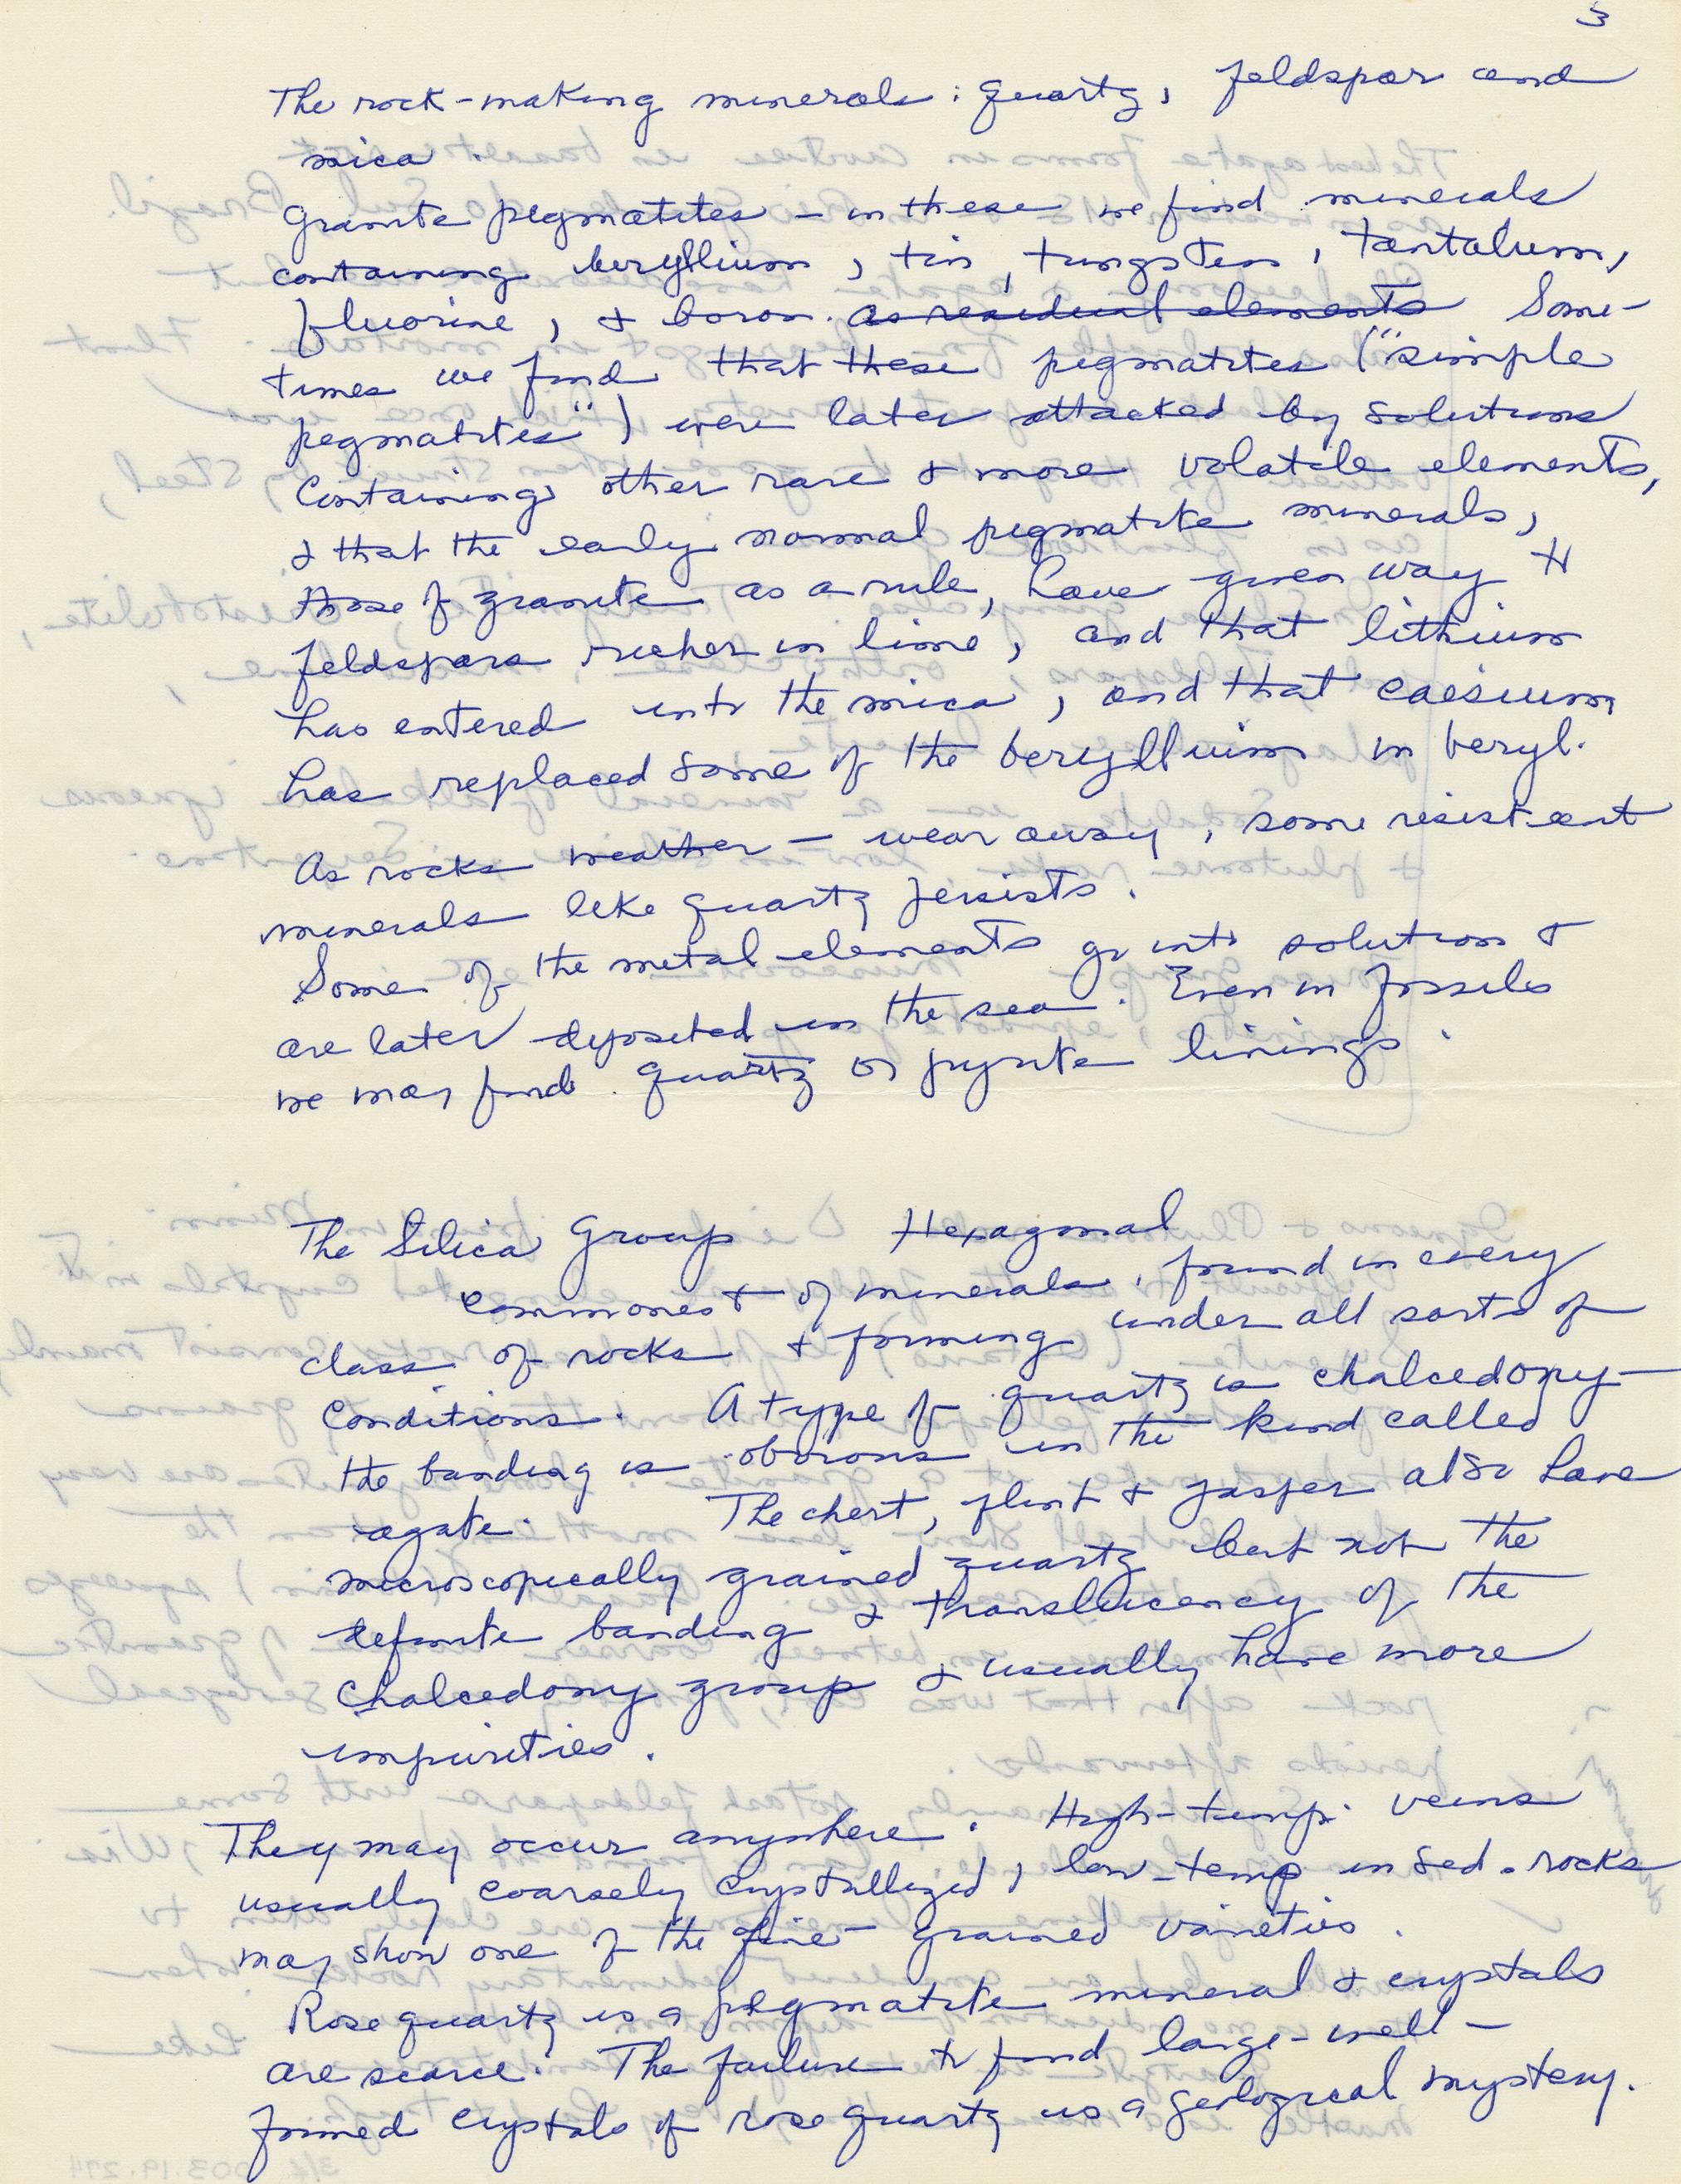 3
The rock-making minerals: quartz, feldspar and
mica.
Granite pegmatites - in these we find minerals
containing beryllium, tin, tungsten, tantalum,
fluorine, & boron. as residual elements Some-
times we find that these pegmatites ("simple
pegmatites") were later attacked by solutions
containing other rare & more volatile elements,
& that the early normal pegmatite minerals,
those of granite as a rule, have given way to
feldspars richer in lime, and that lithium
has entered into the mica, and that caesium
has replaced some of the beryllium in beryl.
As rocks weather - wear away, some resistant
minerals like quartz persists.
Some of the metal elements go into solution &
are later deposited in the sea. Even in fossils
we may find quartz or pyrite linings.
The Silica Group Hexagonal
Commonest of minerals, found in every
class of rocks & forming under all sorts of
conditions. A type of quartz is chalcedony-
the banding is obvious in the kind called
agate. The chert, flint & jasper also have
microscopically grained quartz but not the
definite banding & translucency of the
chalcedony group & usually have more
impurities.
They may occur anywhere. High-temp. veins
usually coarsely crystallized, low-temp in sed. rocks
may show one of the fine-grained varieties.
Rose quartz is a pegmatite mineral & crystals
are scarce. The failure to find large-well-
formed crystals of rose quartz is a geological mystery.